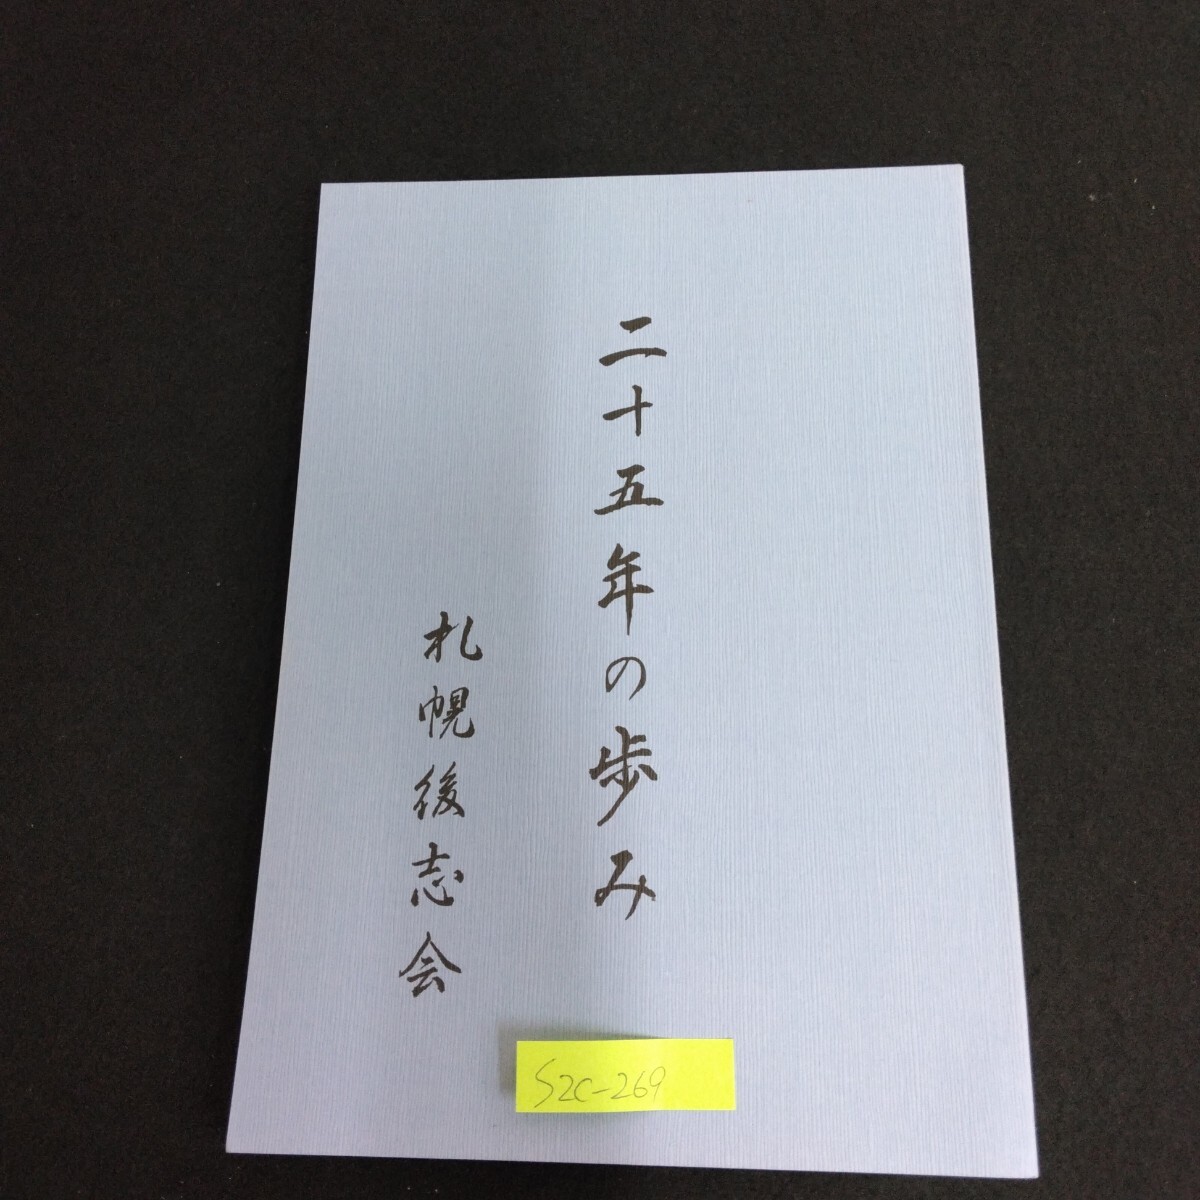 二十五年の歩み
札幌後志会
S2C-269